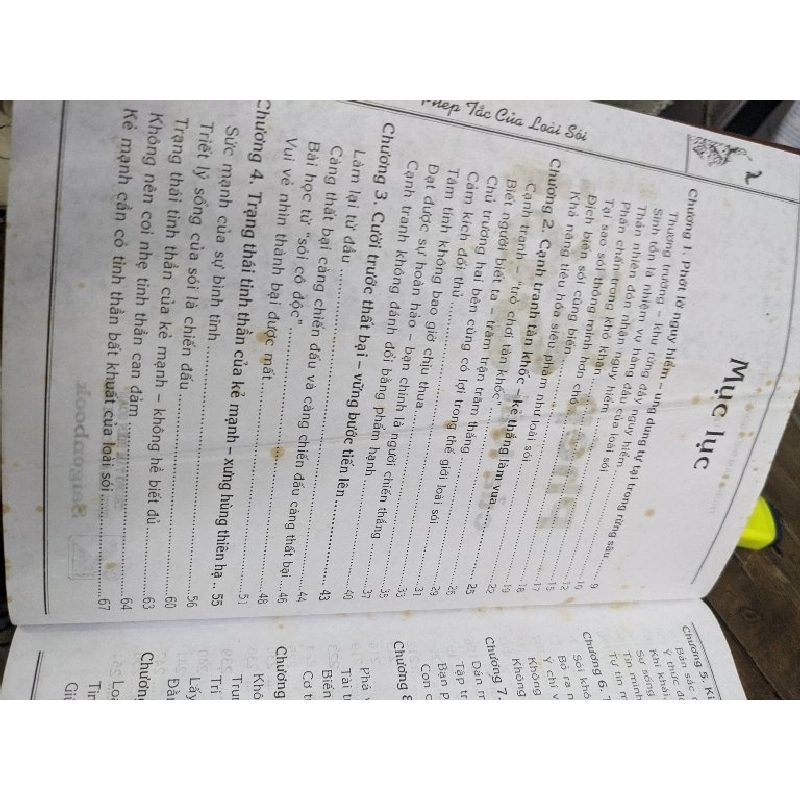 Tắc Của Loài Sói
2
Mục lục
Chương 1. Phớt lờ nguy hiểm – ung dung tự tại trong rừng sâu ..... 9
Thương trường – khu rừng đầy nguy hiểm ..... 10
Sinh tồn là nhiệm vụ hàng đầu của loài sói ..... 12
Thản nhiên đón nhận nguy hiểm ..... 15
Phấn chấn trong khó khăn ..... 17
Tại sao sói thông minh hơn chó ..... 18
Địch biến sói cũng biến ..... 19
Khả năng tiêu hóa siêu phàm như loài sói ..... 22
Chương 2. Cạnh tranh tàn khốc – kẻ thắng làm vua ..... 23
Cạnh tranh – "trò chơi tàn khốc" ..... 26
Biết người biết ta – trăm trận trăm thắng ..... 29
Chủ trương hai bên cùng có lợi trong thế giới loài sói ..... 31
Cảm kích đối thủ ..... 33
Tâm tính không bao giờ chịu thua ..... 35
Đạt được sự hoàn hảo – bạn chính là người chiến thắng ..... 37
Cạnh tranh không đánh đổi bằng phẩm hạnh ..... 40
Chương 3. Cười trước thất bại – vững bước tiến lên ..... 43
Làm lại từ đầu ..... 44
Càng thất bại càng chiến đấu và càng chiến đấu càng thất bại ..... 46
Bài học từ "sói cô độc" ..... 48
Vui vẻ nhìn thành bại được mất ..... 51
Chương 4. Trạng thái tinh thần của kẻ mạnh – xưng hùng thiên hạ .. 55
Sức mạnh của sự bình tĩnh ..... 56
Triết lý sống của sói là chiến đấu ..... 60
Trạng thái tinh thần của kẻ mạnh – không hề biết đủ ..... 63
Không nên coi nhẹ tinh thần can đảm ..... 64
Kẻ mạnh cần có tinh thần bất khuất của loài sói ..... 67
Chương 5. Ki
Bản sắc
Ý thức
Khí khái
Sự sống
Tin minh
Tự tin
Chương 6.
Sói khô
Bỏ ra
Ý chí
Không
Không
Chương 7.
Dám
Tập tr
Bạn p
Con
Chương 8
Phá
Tài
Biến
Cơ
Chương
Khô
Trun
Trí
Lấy
Đằ
Chương
Loà
Tin
Giữ